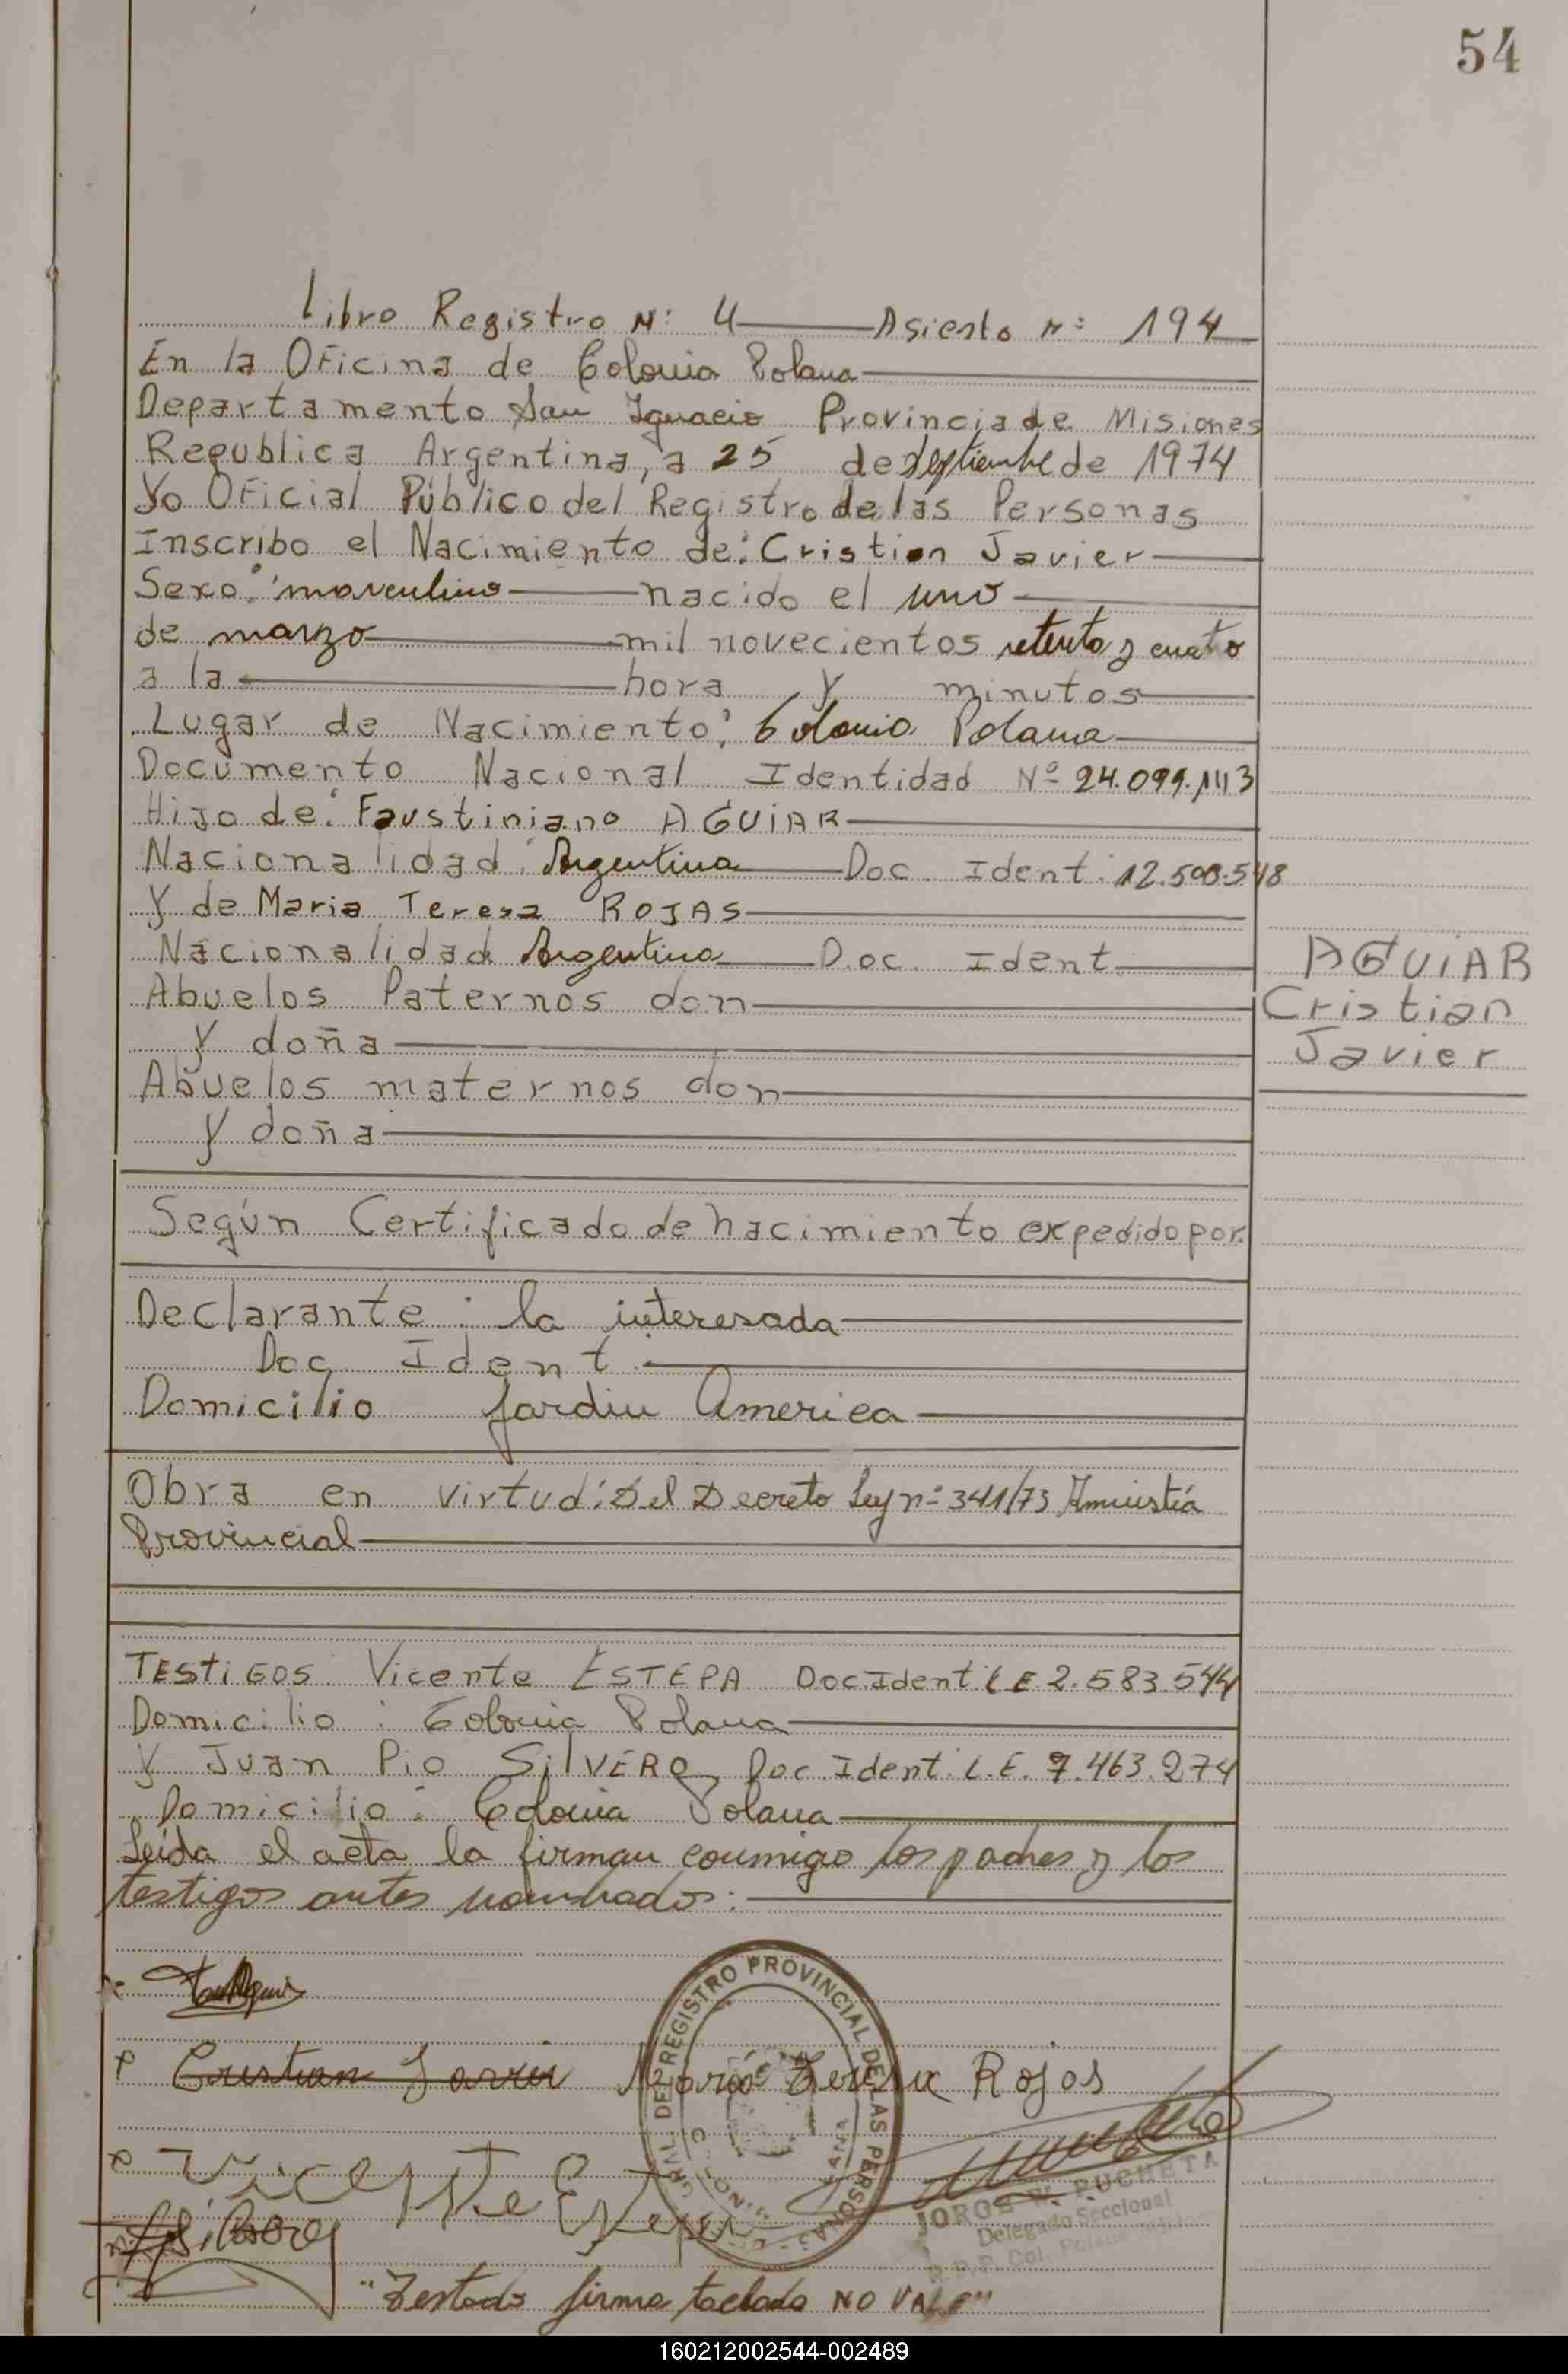 54
Libro Registro N: 4 Asiento N: 194
En la Oficina de Colonia Polana
Departamento San Ignacio Provincia de Misiones
Republica Argentina, a 25 de septiembre de 1974
Yo Oficial Público del Registro de las Personas
Inscribo el Nacimiento de: Cristian Javier
Sexo: masculino nacido el uno
de marzo mil novecientos setenta y cuatro
a la hora y minutos
Lugar de Nacimiento: Colonia Polana
Documento Nacional Identidad Nº 24.099.113
Hijo de: Faustiniano AGUIAR
Nacionalidad: Argentina Doc. Ident. 12.508.548
Y de Maria Teresa ROJAS
Nacionalidad Argentina Doc. Ident.
AGUIAR
Abuelos Paternos don
Cristian
y doña
Javier
Abuelos maternos don
y doña
Según Certificado de nacimiento expedido por.
Declarante: la interesada
Doc Ident.
Domicilio Jardin America
Obra en virtud: Del Decreto Ley nº 341/73 Amnistía
Provincial
TESTIGOS Vicente ESTEPA Doc.Ident L.E. 2.583.544
Domicilio: Colonia Polana
y Juan Pio SILVERO Doc. Ident. L.E. 7.463.274
Domicilio: Colonia Polana
Leída el acta la firman conmigo los padres y los
testigos antes nombrados:
Cristian Javier Maria Teresa Rojas
DEL REGISTRO PROVINCIAL DE LAS PERSONAS
Vicente Estepa
JORGE W. PUCHETA
Delegado Seccional
R.P.P. Col. Polana
"Testado firma tachada NO VALE"
160212002544-002489